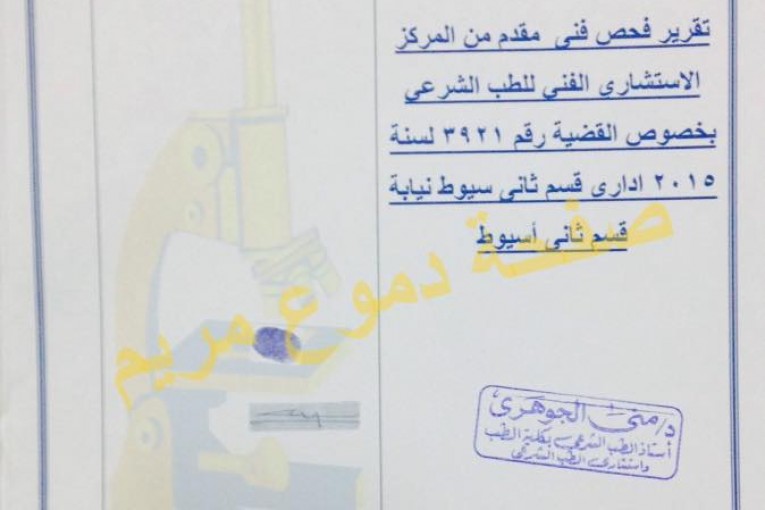 تقرير فحص فنى مقدم من المركز
الاستشارى الفنى للطب الشرعى
بخصوص القضية رقم ٣٩٢١ لسنة
٢٠١٥ ادارى قسم ثانى سيوط نيابة
قسم ثانى أسيوط
صفحة دموع مريم
د/ منى الجوهرى
أستاذ الطب الشرعى بكلية الطب
واستشارى الطب الشرعى